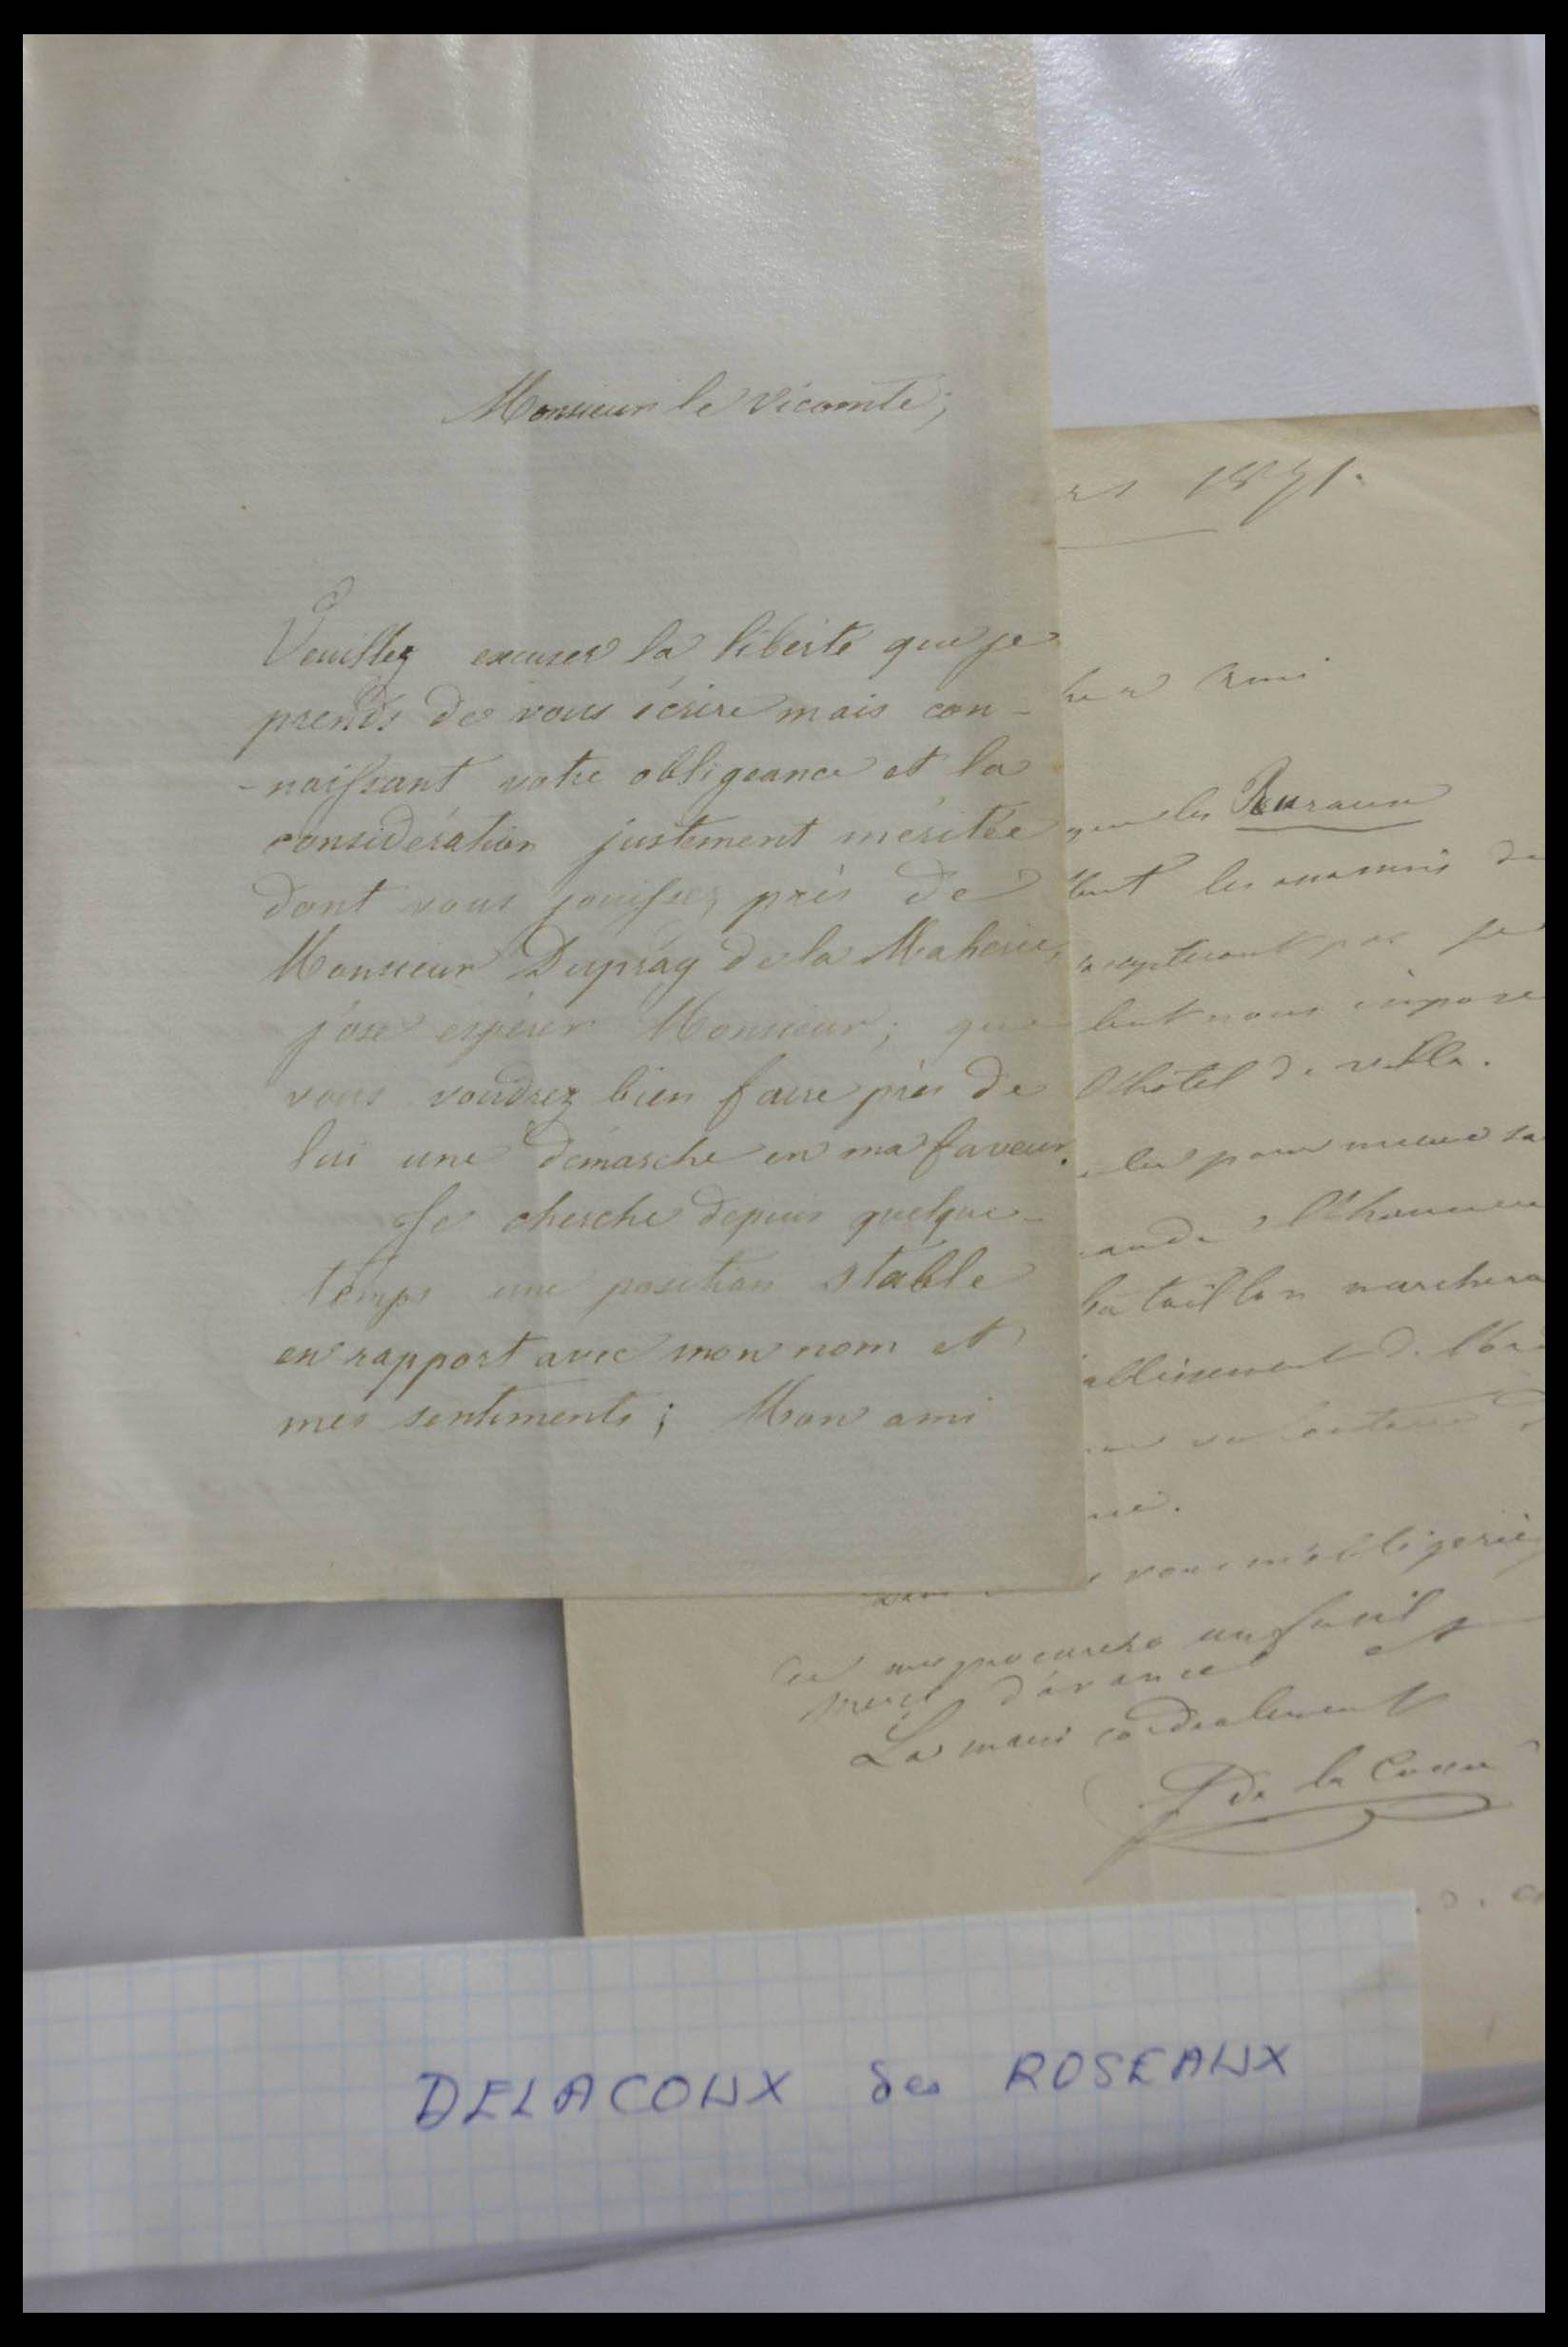 Monsieur le Vicomte;
Veuillez excuser la liberté que je
prends de vous écrire mais con-
-naissant votre obligeance et la
considération justement méritée
dont vous jouissez près de
Monsieur Dupray de la Maherie,
j'ose espérer Monsieur; que
vous voudrez bien faire près de
lui une démarche en ma faveur.
Je cherche depuis quelque-
temps une position stable
en rapport avec mon nom et
mes sentiments; Mon ami
rs 1871.
her ami
que les Ruraux
les de
pas je
nous impose
l'hôtel de ville.
pour
l'honneur
bataillon marchera
de
vous m'obligeriez
de me procurer un fusil
merci d'avance et
La main cordialement
de la Coux
DELACOUX des ROSEAUX